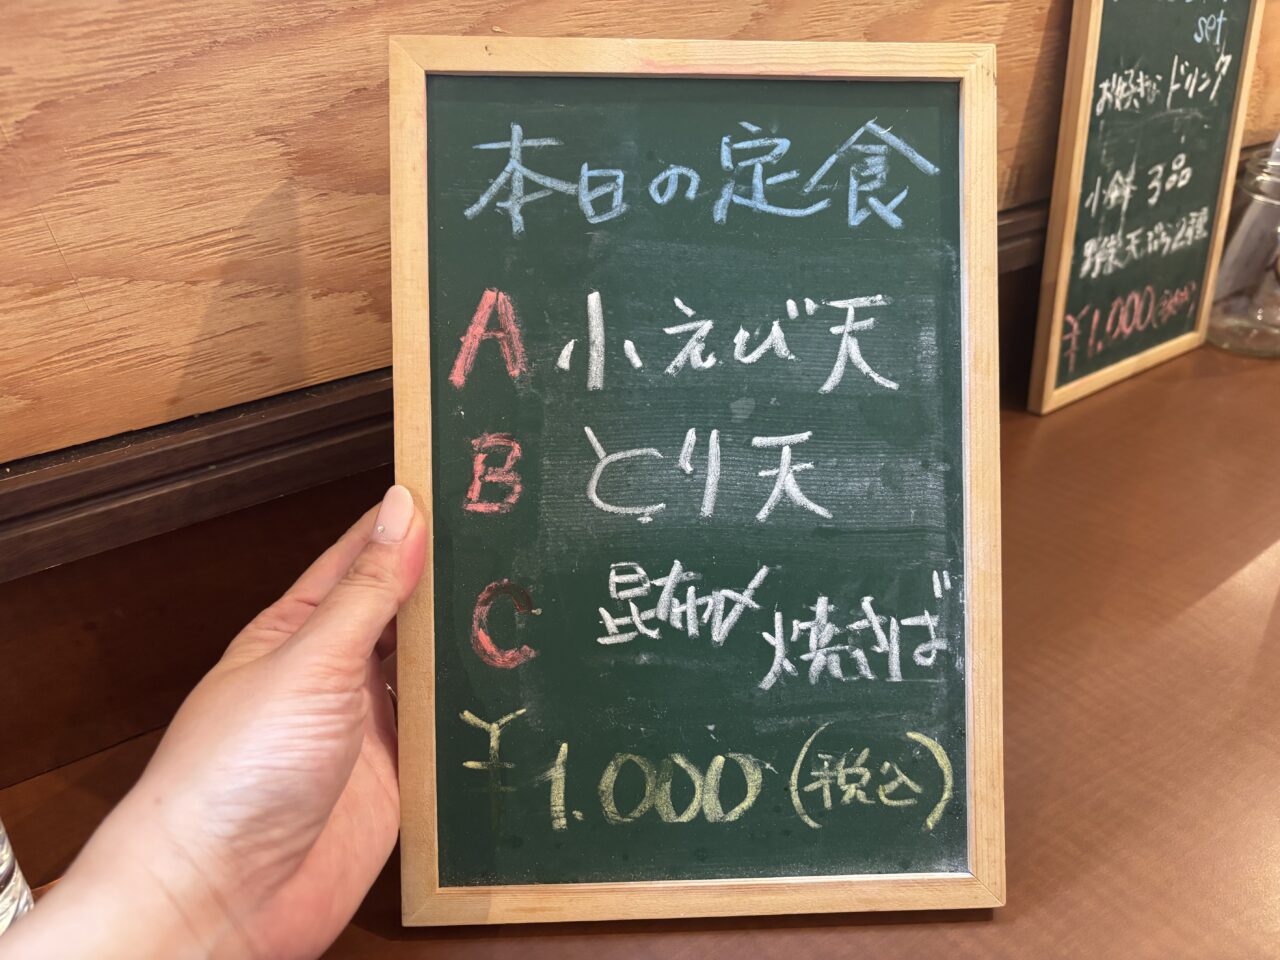 本日の定食
A 小えび天
B とり天
C 昆布〆
焼さば
¥1.000(税込)
set
お好きなドリンク
小鉢 3品
野菜天ぷら2種
¥1.000(税込)